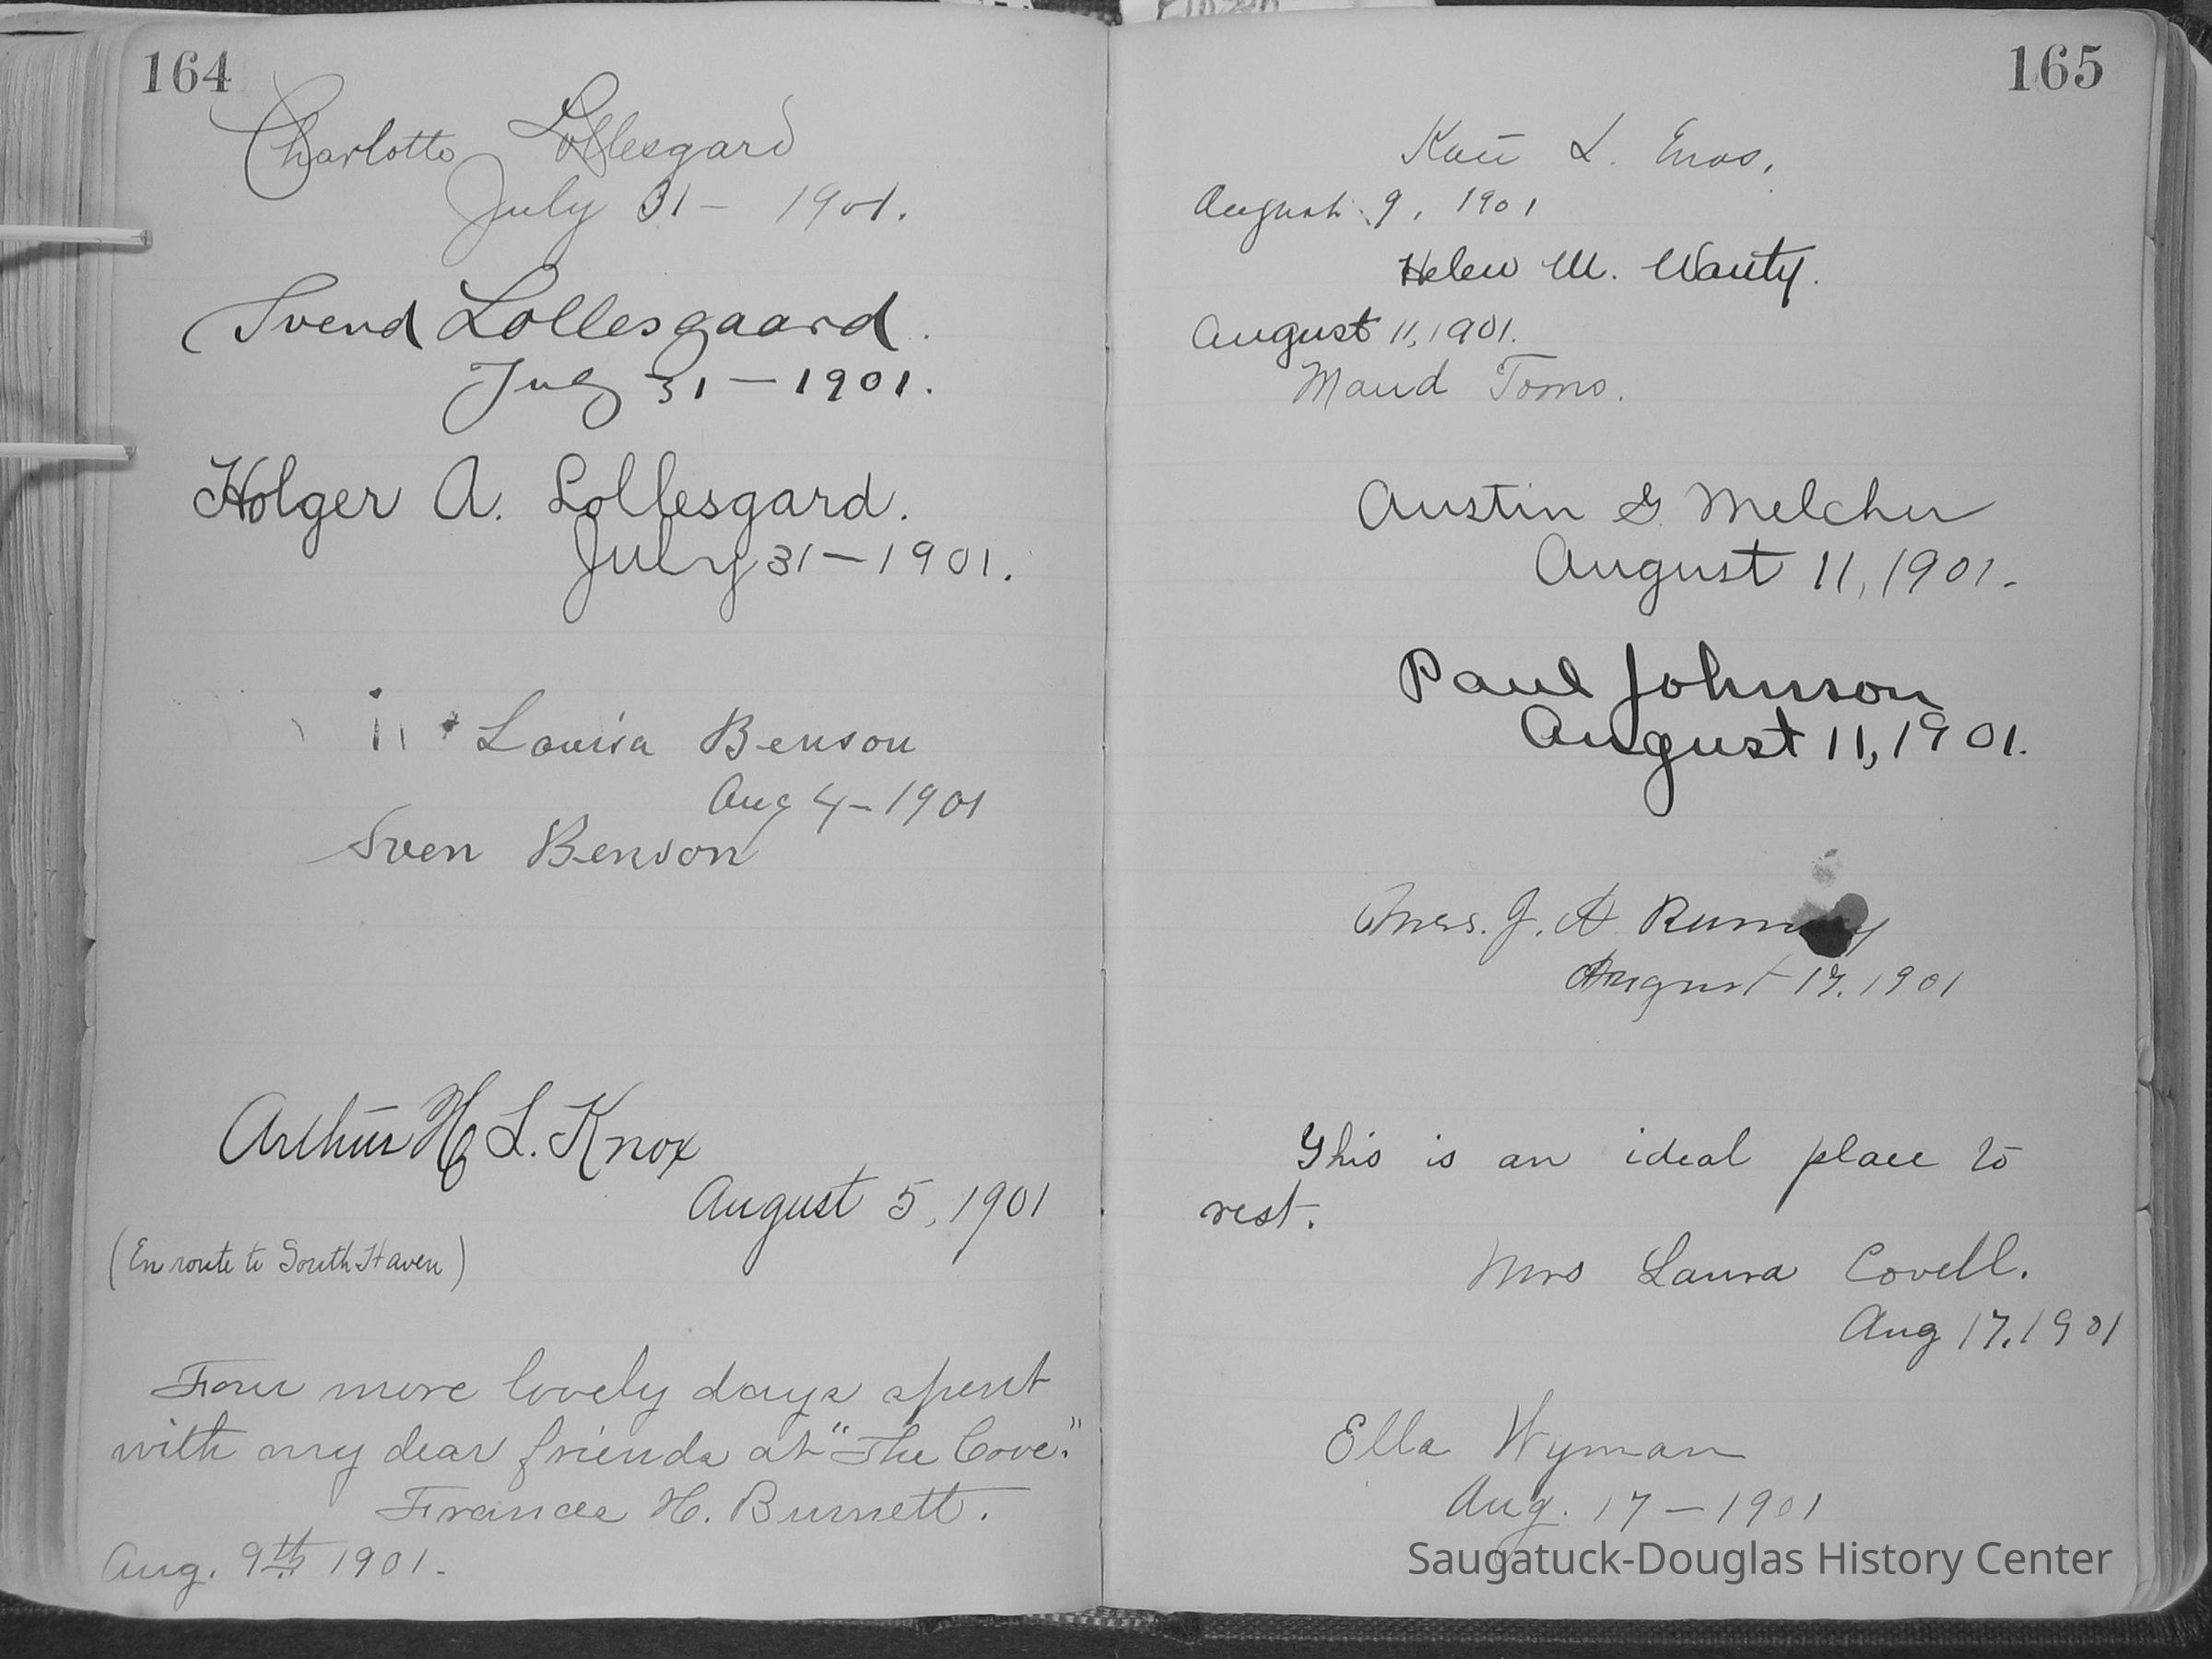 164
Charlotte Lollesgard
July 31 - 1901.
Svend Lollesgaard.
July 31 - 1901.
Holger A. Lollesgard.
July 31 - 1901.
Louisa Benson
Aug 4 - 1901
Sven Benson
Arthur H. L. Knox
August 5, 1901
(En route to South Haven)
Four more lovely days spent
with my dear friends at "The Cove."
Frances H. Burnett.
Aug. 9th 1901.
165
Kate L. Enos.
August 9, 1901
Helen M. Wanty.
August 11, 1901.
Maud Toms.
Austin G. Melcher
August 11, 1901.
Paul Johnson
August 11, 1901.
Mrs. J. A
August 17, 1901
This is an ideal place to
rest.
Mrs Laura Covell.
Aug 17, 1901
Ella Wyman
Aug. 17 - 1901
Saugatuck-Douglas History Center